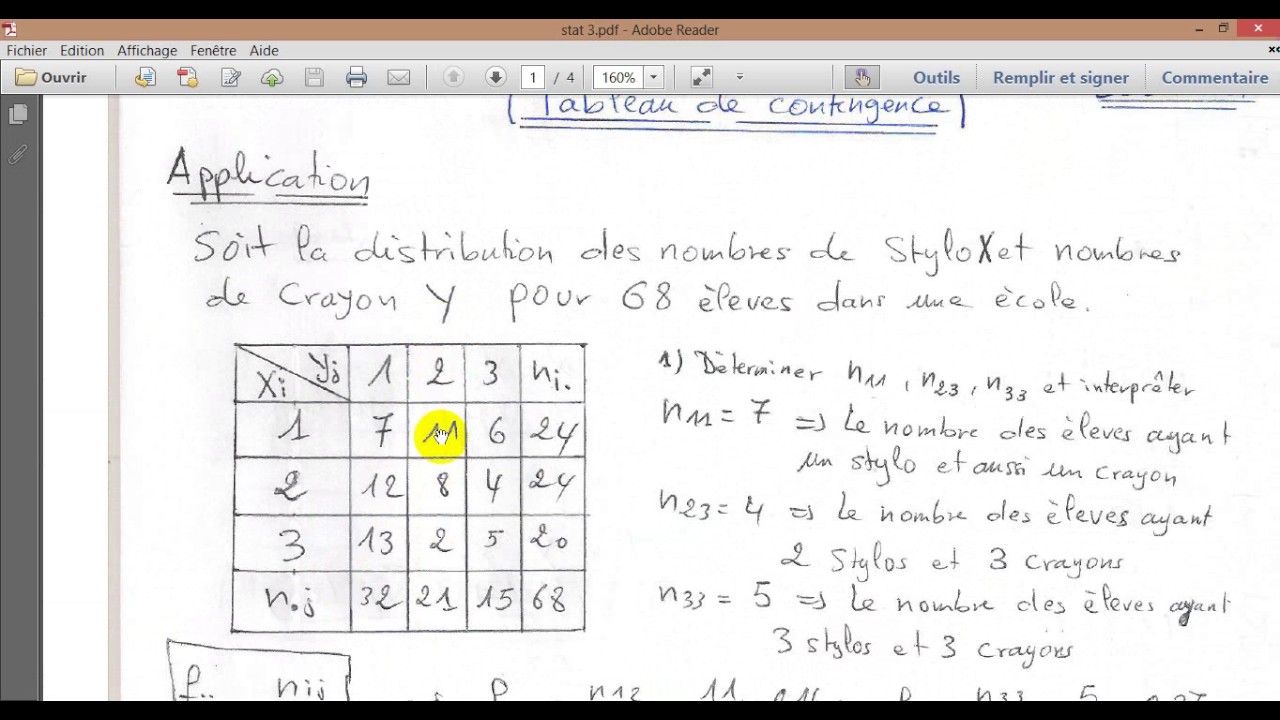 stat 3.pdf - Adobe Reader
Fichier Edition Affichage Fenêtre Aide
Ouvrir 1 / 4 160% Outils Remplir et signer Commentaire
Tableau de contingence
Application
Soit la distribution des nombres de Stylo X et nombres
de Crayon Y pour 68 èleves dans une ècole.
Xi Yj 1 2 3 ni.
1 7 11 6 24
2 12 8 4 24
3 13 2 5 20
n.j 32 21 15 68
1) Dèterminer n11, n23, n33 et interprêter
n11 = 7 => Le nombre des èleves ayant
un stylo et aussi un crayon
n23 = 4 => Le nombre des èleves ayant
2 Stylos et 3 crayons
n33 = 5 => Le nombre des èleves ayant
3 stylos et 3 crayons
nij n12 11 n33 5